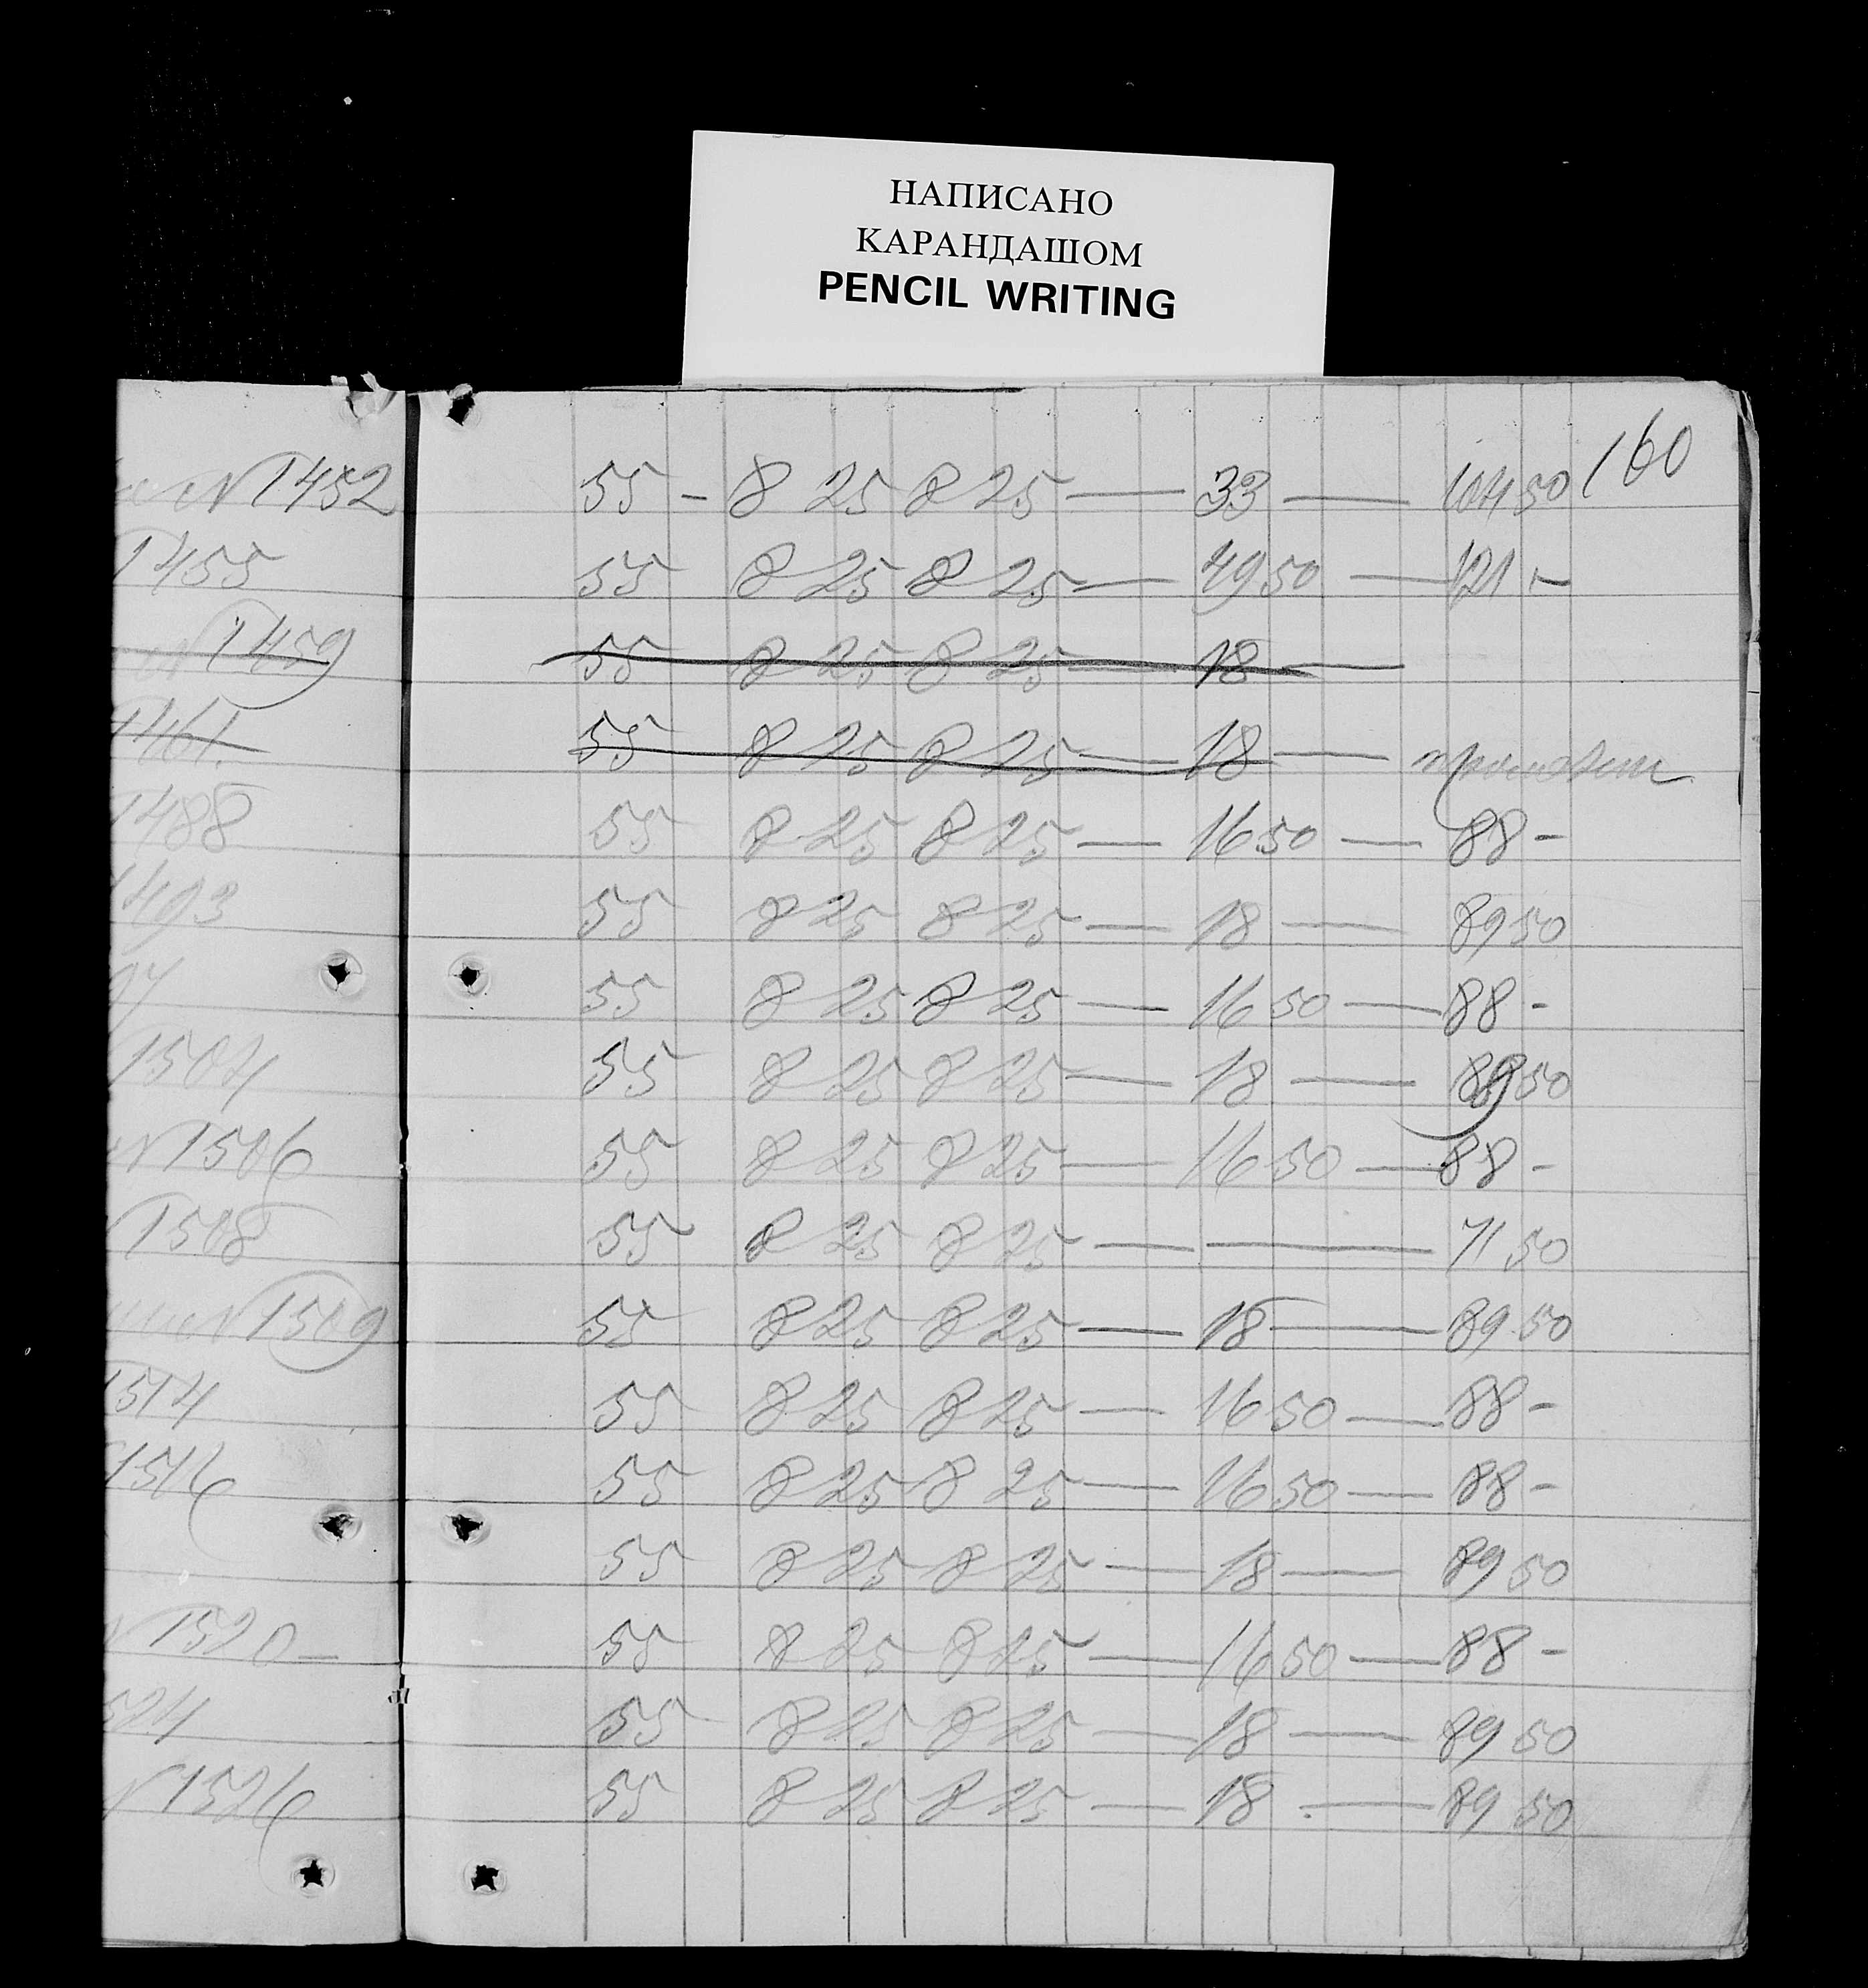 НАПИСАНО
КАРАНДАШОМ
PENCIL WRITING
160
N 1452 55 - 8 25 8 25 — 33 — 104 50
1455 55 8 25 8 25 — 49 50 — 121 -
N 1459 55 8 25 8 25 — 18 —
1461. 55 8 25 8 25 — 18 —
1488 55 8 25 8 25 — 16 50 — 88 -
1493 55 8 25 8 25 — 18 — 89 50
97 55 8 25 8 25 — 16 50 — 88 -
1504 55 8 25 8 25 — 18 — 89 50
N 1506 55 8 25 8 25 — 16 50 — 88 -
1508 55 8 25 8 25 — — 71 50
N 1509 55 8 25 8 25 — 18 — 89 50
1514 55 8 25 8 25 — 16 50 — 88 -
1516 55 8 25 8 25 — 16 50 — 88 -
55 8 25 8 25 — 18 — 89 50
N 1520 — 55 8 25 8 25 — 16 50 — 88 -
524 55 8 25 8 25 — 18 — 89 50
N 1526 55 8 25 8 25 — 18 — 89 50